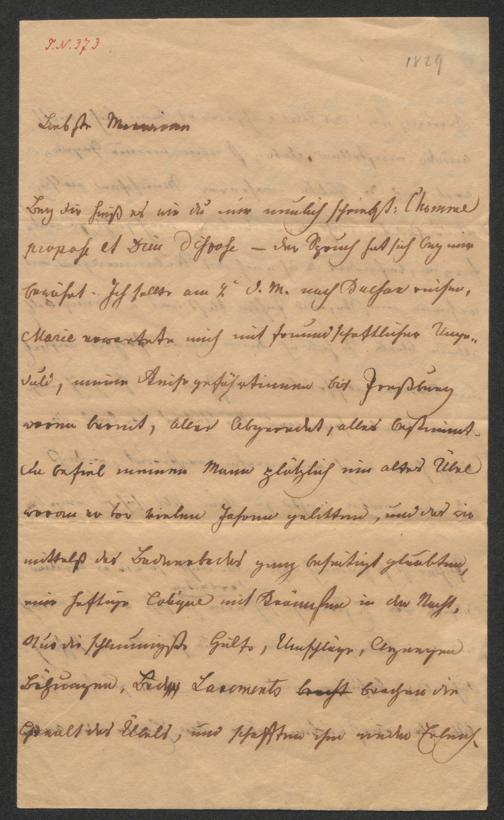 I.N. 373
1829
Liebste
Bey dir hieß es wie du mir neulich schriebst: l'homme
propose et Dieu dispose — der Spruch hat sich bey mir
bewährt. Ich sollte am 4t d. M. nach reisen,
Marie erwartete mich mit freundschaftlicher Unge-
duld, meine Reisegefährtinnen bis Preßburg
waren bereit, alles abgeredet, alles bestimmt.
da befiel meinen Mann plötzlich ein altes Übel
woran er vor vielen Jahren gelitten, und das wir
mittelst des Badnerbades ganz beseitigt glaubten,
eine heftige Colique mit Krämpfen in der Nacht.
Nur die schleunigste Hülfe, Umschläge,
Bähungen, Lavements brachen die
Gewalt des Übels, und schafften ihm wieder Erleich-